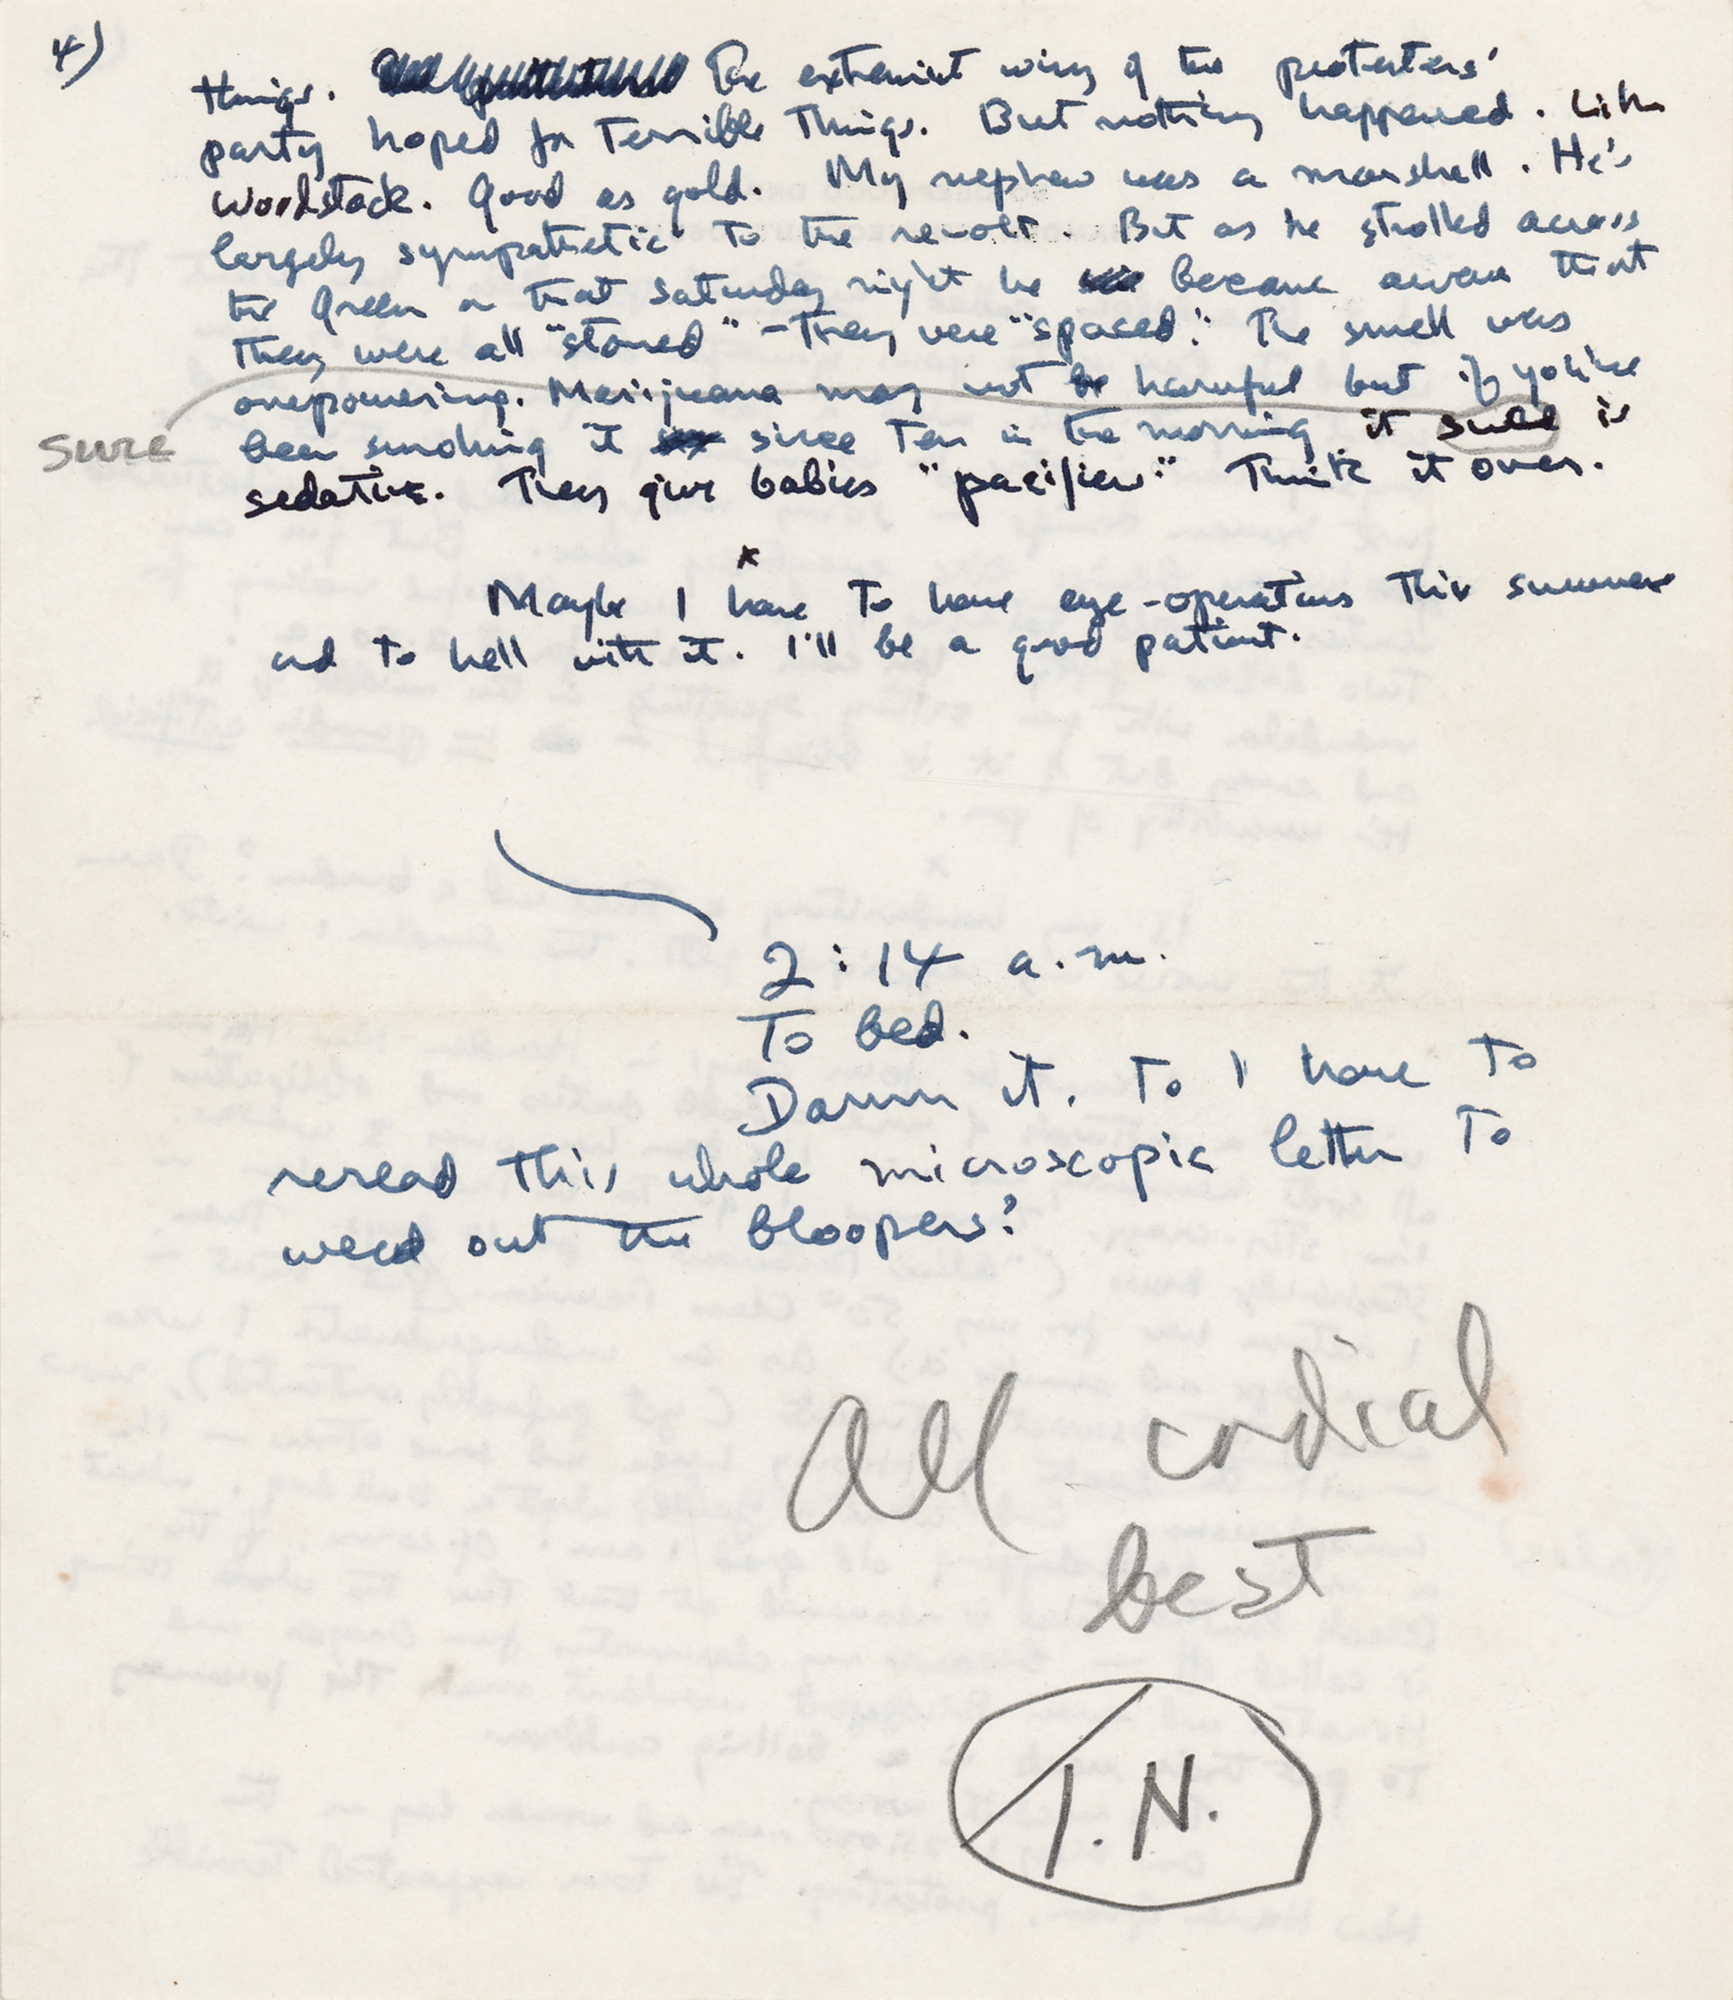 4)
things. The extremist wing of the protesters'
party hoped for Terrible Things. But nothing happened. Like
Woodstock. Good as gold. My nephew was a marshall. He's
largely sympathetic to the revolt. But as he strolled across
the Green on that Saturday night he became aware that
they were all "stoned" – They were "spaced". The smell was
overpowering. Marijuana may not be harmful but if you've
been smoking it since Ten in the morning it sure is
sure
sedative. They give babies "pacifiers." Think it over.
x
Maybe I have To have eye-operations This summer
and to hell with it. I'll be a good patient.
2:14 a.m.
To bed.
Damn it. To I have To
reread this whole microscopic letter To
weed out the bloopers?
All cordial
best
T.N.